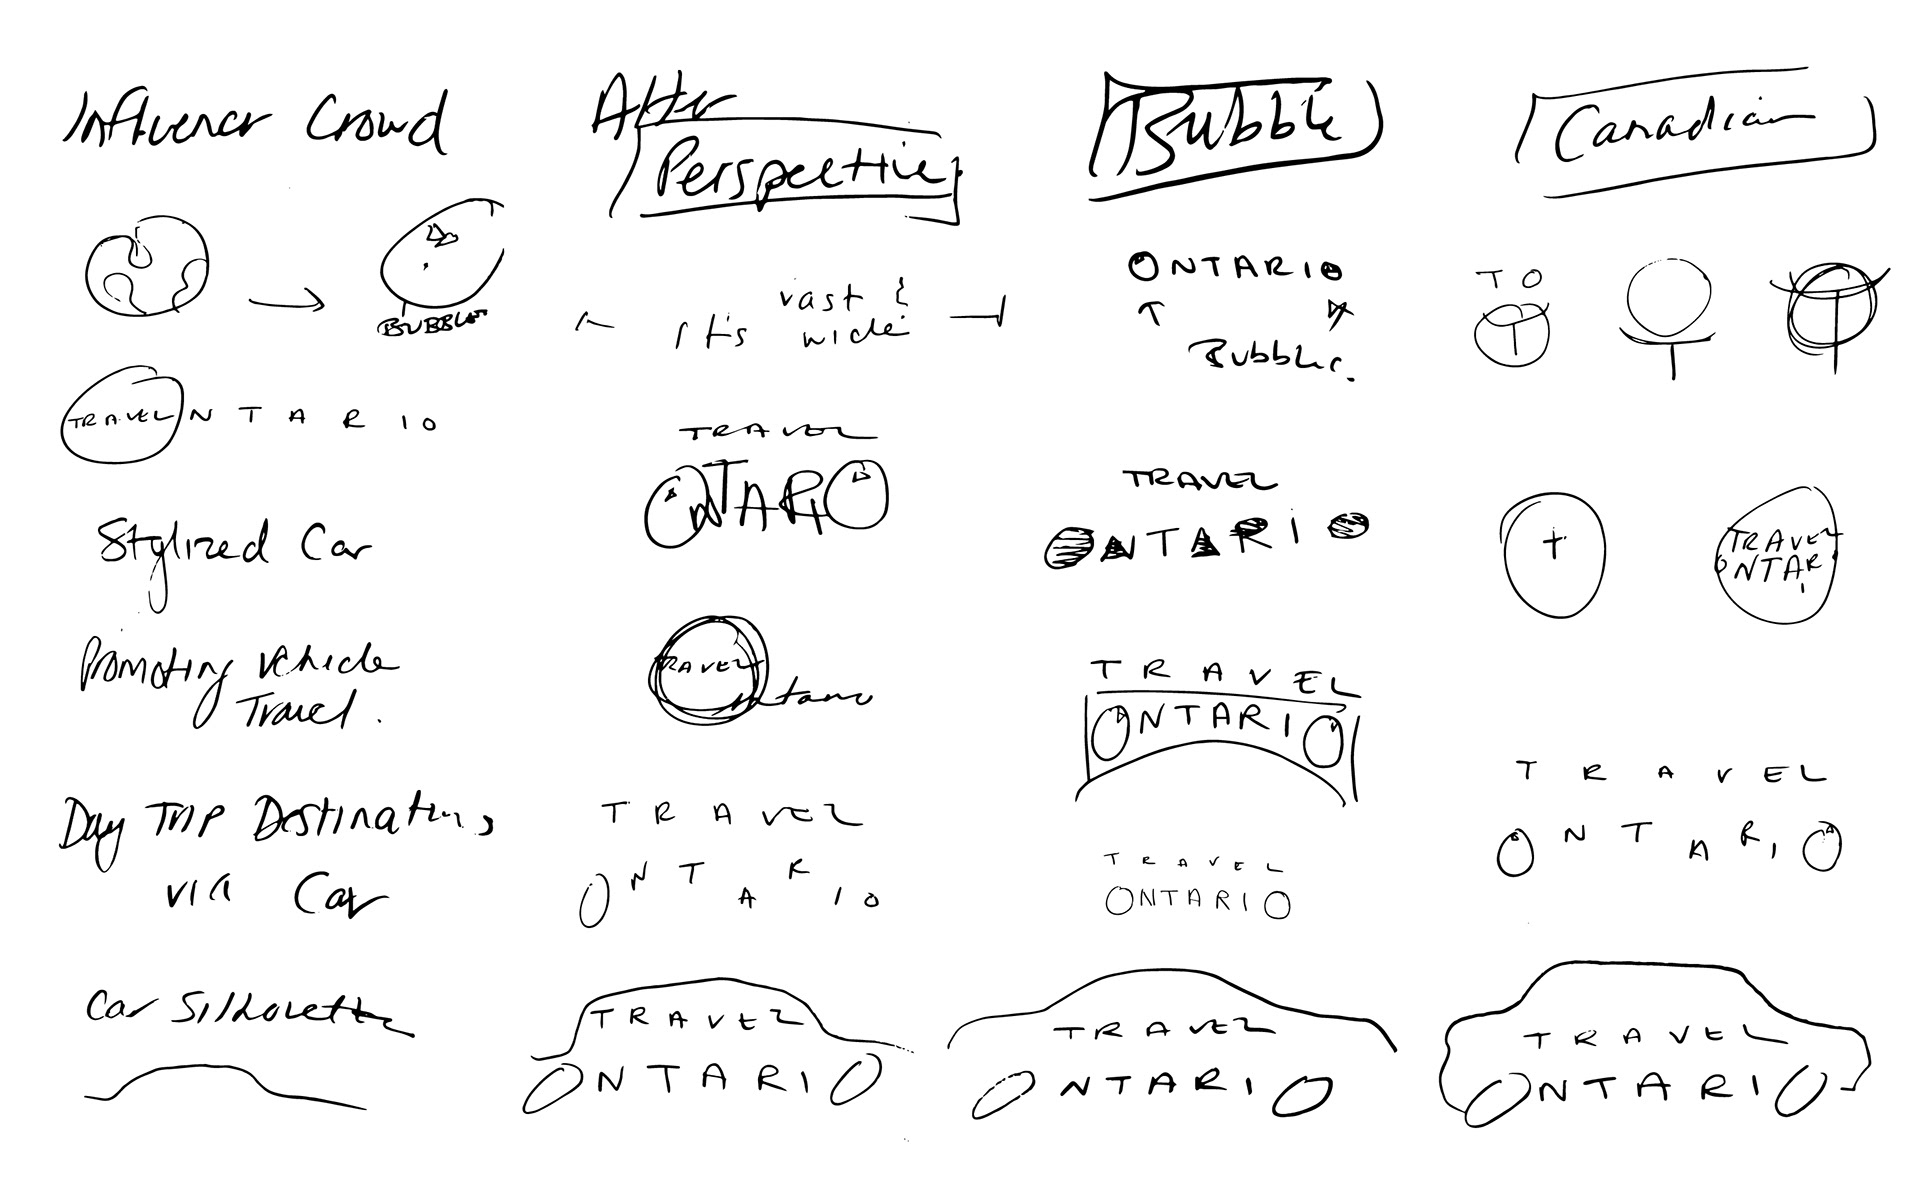 Influencer Crowd
BUBBLE
TRAVEL NTARIO
Stylized Car
Promoting Vehicle
Travel.
Day Trip Destinations
via Car
Car Silhouette
After
Perspective
It's vast &
wide
TRAVEL
ONTARIO
TRAVEL
ntario
TRAVEL
ONTARIO
TRAVEL
ONTARIO
Bubble
ONTARIO
Bubbles.
TRAVEL
ONTARIO
TRAVEL
ONTARIO
TRAVEL
ONTARIO
TRAVEL
ONTARIO
Canadian
TO
T
TRAVEL
ONTARI
TRAVEL
ONTARIO
TRAVEL
ONTARIO